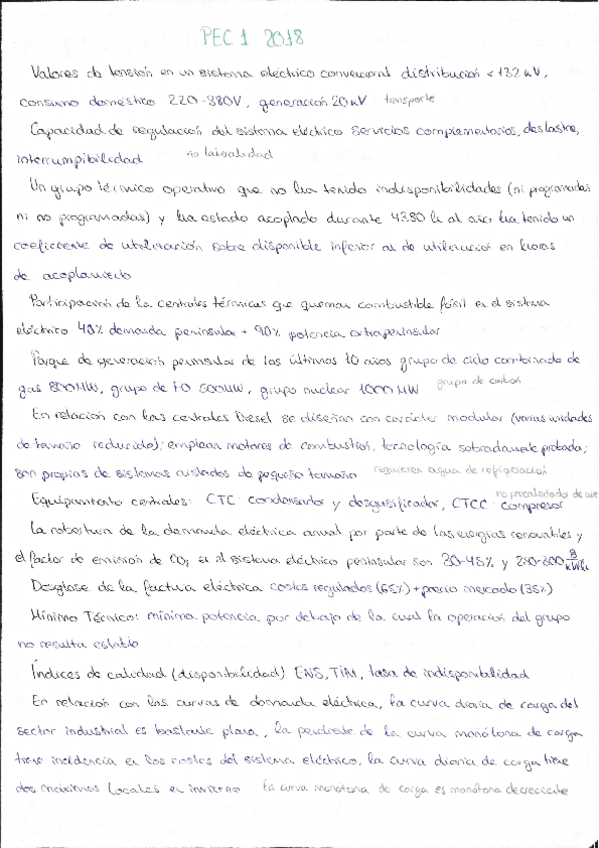 PEC 1 2018
Valores de tensión en un sistema eléctrico convencional distribución < 132 kV,
consumo doméstico 220-380V, generación 20 kV transporte
Capacidad de regulación del sistema eléctrico servicios complementarios, deslastre,
interrumpibilidad no laboralidad
Un grupo térmico operativo que no ha tenido indisponibilidades (ni programadas
ni no programadas) y ha estado acoplado durante 4380 h al año, ha tenido un
coeficiente de utilización sobre disponible inferior al de utilización en horas
de acoplamiento
Participación de la centrales térmicas que queman combustible fósil en el sistema
eléctrico 40% demanda peninsular + 90% potencia extrapeninsular
Parque de generación peninsular de los últimos 10 años grupo de ciclo combinado de
gas 800MW, grupo de FO 500MW, grupo nuclear 1000 MW grupo de carbón
En relación con las centrales Diesel se diseñan con carácter modular (varias unidades
de tamaño reducido); emplean motores de combustión, tecnología sobradamente probada;
son propias de sistemas aislados de pequeño tamaño requieren agua de refrigeración
Equipamiento centrales: CTC: condensador y desgasificador, CTCC: compresor no precalentador de aire
La cobertura de la demanda eléctrica anual por parte de las energías renovables y
el factor de emisión de CO2 en el sistema eléctrico peninsular son 30-45% y 200-300 g/kWh
Desglose de la factura eléctrica costes regulados (65%) + precio mercado (35%)
Mínimo Técnico: mínima potencia por debajo de la cual la operación del grupo
no resulta estable
Índices de calidad (disponibilidad) ENS, TIM, tasa de indisponibilidad
En relación con las curvas de demanda eléctrica, la curva diaria de carga del
sector industrial es bastante plana, la pendiente de la curva monótona de carga
tiene incidencia en los costes del sistema eléctrico, la curva diaria de carga tiene
dos máximos locales en invierno la curva monótona de carga es monótona decreciente